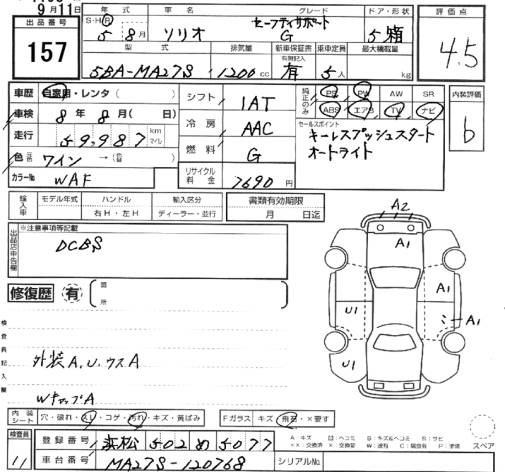 9月11日
出品番号
157
年式
車名
グレード
ドア・形状
評価点
S・H・R
5
8月
ソリオ
セーフティサポート
G
5
箱
4.5
型式
排気量
新車保証書
乗車定員
最大積載量
有無記入
5BA-MA27S
1200cc
有
5人
kg
車歴
自家用・レンタ( )
車検
8年8月( 日)
走行
59,987
km
マイル
色
元色
ワイン
→(色 )
カラーNo
WAF
シフト
1AT
冷房
AAC
燃料
G
リサイクル料金
7690円
純正のみ
PS
PW
AW
SR
ABS
エアB
TV
ナビ
セールスポイント
キーレスプッシュスタート
オートライト
内装評価
b
輸入車
モデル年式
ハンドル
輸入区分
右H・左H
ディーラー・並行
書類有効期限
月 日迄
出品店申告欄
※注意事項等記載
DCBS
修復歴
有
箇所
検査員記入欄
外装A,U,ウスA
WチップA
A2
A1
A1
A1
U1
U1
内装シート
穴・破れ・スレ・コゲ・汚れ・キズ・黄ばみ
Fガラス
キズ・飛石・×要す
検査員
11
登録番号
浜松502め5077
車台番号
MA27S-120768
シリアルNo.
A:キズ
U:ヘコミ
B:キズ&ヘコミ
S:サビ
XX:交換済
X:交換要
W:波有
スペア